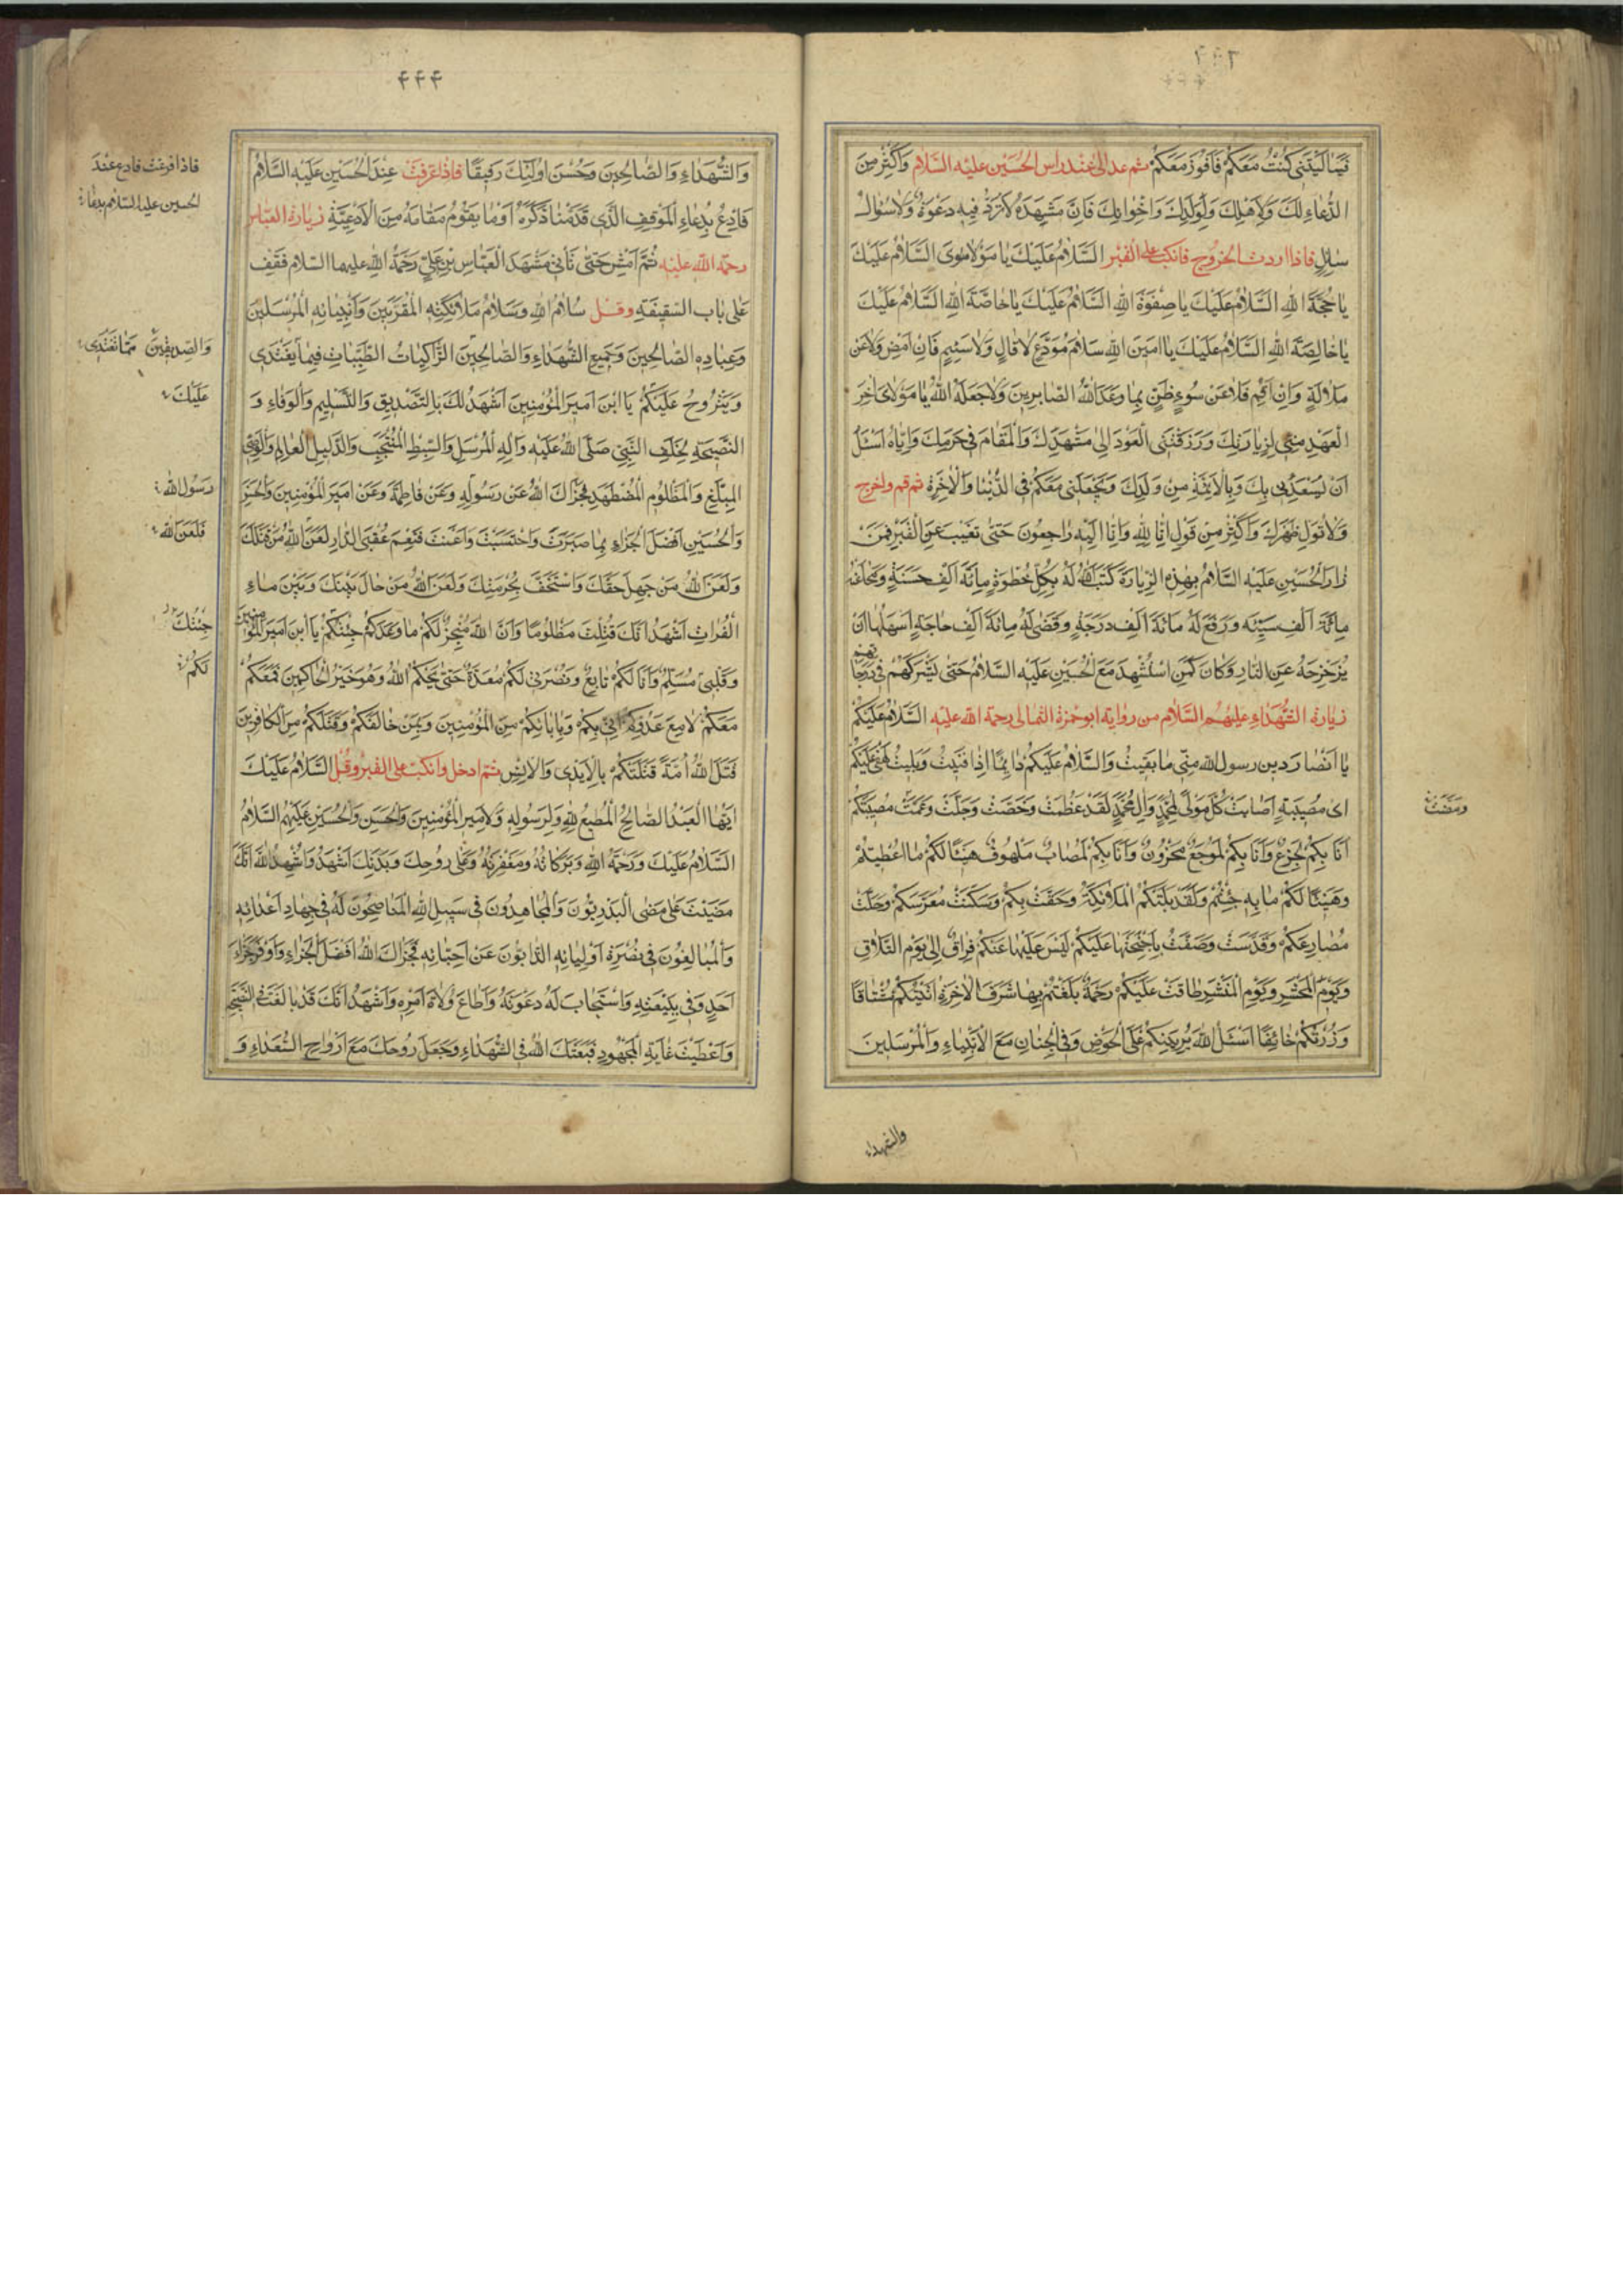 ۴۴۳
فَيَا لَيْتَنِي كُنْتُ مَعَكُمْ فَأَفُوزَ مَعَكُمْ ثم عد الى عند راس الحُسَيْن عليه السَّلام وَأَكْثِرْ مِنَ
الدُّعَاءِ لَكَ وَلِأَهْلِكَ وَلِوَلَدِكَ وَاِخْوَانِكَ فَاِنَّ مَشْهَدَهُ لَا تُرَدُّ فِيهِ دَعْوَةٌ وَلَا سُؤَالُ
سَائِلٍ فاذا اردت الخروج فانكب على القبر السَّلَامُ عَلَيْكَ يَا مَوْلَايَ السَّلَامُ عَلَيْكَ
يَا حُجَّةَ اللهِ السَّلَامُ عَلَيْكَ يَا صِفْوَةَ اللهِ السَّلَامُ عَلَيْكَ يَا خَاصَّةَ اللهِ السَّلَامُ عَلَيْكَ
يَا خَالِصَةَ اللهِ السَّلَامُ عَلَيْكَ يَا اَمِينَ اللهِ سَلَامَ مُوَدِّعٍ لَا قَالٍ وَلَا سَئِمٍ فَاِنْ اَمْضِ فَلَا عَنْ
مَلَالَةٍ وَاِنْ اُقِمْ فَلَا عَنْ سُوءِ ظَنٍّ بِمَا وَعَدَ اللهُ الصَّابِرِينَ وَلَا جَعَلَهُ اللهُ يَا مَوْلَايَ اٰخِرَ
الْعَهْدِ مِنِّي لِزِيَارَتِكَ وَرَزَقَنِيَ الْعَوْدَ اِلَى مَشْهَدِكَ وَالْمَقَامَ فِي حَرَمِكَ وَاِيَّاهُ اَسْئَلُ
اَنْ يُسْعِدَنِي بِكَ وَبِالْاَئِمَّةِ مِنْ وَلَدِكَ وَيَجْعَلَنِي مَعَكُمْ فِي الدُّنْيَا وَالْاٰخِرَةِ ثم قم واخرج
وَلَا تُوَلِّ ظَهْرَكَ وَاَكْثِرْ مِنْ قَوْلِ اِنَّا لِلّٰهِ وَاِنَّا اِلَيْهِ رَاجِعُونَ حَتَّى تَغِيبَ عَنِ الْقَبْرِ فَمَنْ
زَارَ الْحُسَيْنِ عَلَيْهِ السَّلَامُ بِهٰذِهِ الزِّيَارَةِ كَتَبَ اللهُ لَهُ بِكُلِّ خُطْوَةٍ مِائَةَ اَلْفِ حَسَنَةٍ وَمَحَا عَنْهُ
مِائَةَ اَلْفِ سَيِّئَةٍ وَرَفَعَ لَهُ مِائَةَ اَلْفِ دَرَجَةٍ وَقَضَى لَهُ مِائَةَ اَلْفِ حَاجَةٍ اَسْهَلُهَا اَنْ
يُزَحْزِحَهُ عَنِ النَّارِ وَكَانَ كَمَنِ اسْتُشْهِدَ مَعَ الْحُسَيْنِ عَلَيْهِ السَّلَامُ حَتَّى يَشْرَكَهُمْ فِي دَرَجَاتِهِمْ
زيارة الشُّهَدَاءِ عليهم السَّلام من رواية ابو حمزة الثمالى رحمة الله عليه السَّلَامُ عَلَيْكُمْ
يَا اَنْصَارَ دِينِ رَسُولِ اللهِ مِنِّي مَا بَقِيتُ وَالسَّلَامُ عَلَيْكُمْ دَائِمًا اِذَا فَنِيتُ وَبَلِيتُ لَهْفِي عَلَيْكُمْ
اَيُّ مُصِيبَةٍ اَصَابَتْ كُلَّ مَوْلًى لِمُحَمَّدٍ وَاٰلِ مُحَمَّدٍ لَقَدْ عَظُمَتْ وَخَصَّتْ وَجَلَّتْ وَعَمَّتْ مُصِيبَتُكُمْ
اَنَا بِكُمْ لَجَزِعٌ وَاَنَا بِكُمْ لَمُوجَعٌ مَحْزُونٌ وَاَنَا بِكُمْ لَمُصَابٌ مَلْهُوفٌ هَنِيئًا لَكُمْ مَا اُعْطِيتُمْ
وَهَنِيئًا لَكُمْ مَا بِهِ حُيِّيتُمْ وَلَقَدْ بَكَتْكُمُ الْمَلَائِكَةُ وَحَفَّتْ بِكُمْ وَسَكَنَتْ مُعَسْكَرَكُمْ وَحَلَّتْ
مَصَارِعَكُمْ وَقَدَّسَتْ وَصَفَّتْ بِاَجْنِحَتِهَا عَلَيْكُمْ لَيْسَ عَلَيْهَا عَنْكُمْ فِرَاقٌ اِلَى يَوْمِ التَّلَاقِ
وَيَوْمِ الْمَحْشَرِ وَيَوْمِ الْمَنْشَرِ طَافَتْ عَلَيْكُمْ رَحْمَةٌ بَلَغْتُمْ بِهَا شَرَفَ الْاٰخِرَةِ اَتَيْتُكُمْ مُشْتَاقًا
وَزُرْتُكُمْ خَائِفًا اَسْئَلُ اللهَ اَنْ يُرِيَنِيكُمْ عَلَى الْحَوْضِ وَفِي الْجِنَانِ مَعَ الْاَنْبِيَاءِ وَالْمُرْسَلِينَ
والشهداء
۴۴۴
وَالشُّهَدَاءِ وَالصَّالِحِينَ وَحَسُنَ اُولٰئِكَ رَفِيقًا فاذا عَرَّفْتَ عِنْدَ الْحُسَيْنِ عَلَيْهِ السَّلَامُ
فَادْعُ بِدُعَاءِ الْمَوْقِفِ الَّذِي قَدَّمْنَا ذِكْرَهُ اَوْ مَا يَقُومُ مَقَامَهُ مِنَ الْاَدْعِيَةِ زيارة العباس
رحمة الله عليه ثُمَّ امْشِ حَتَّى تَأْتِيَ مَشْهَدَ الْعَبَّاسِ بْنِ عَلِيٍّ رَحْمَةُ اللهِ عليهما السلام فَقِفْ
عَلَى بَابِ السَّقِيفَةِ وقل سَلَامُ اللهِ وَسَلَامُ مَلَائِكَتِهِ الْمُقَرَّبِينَ وَاَنْبِيَائِهِ الْمُرْسَلِينَ
وَعِبَادِهِ الصَّالِحِينَ وَجَمِيعِ الشُّهَدَاءِ وَالصَّالِحِينَ الزَّاكِيَاتُ الطَّيِّبَاتُ فِيمَا يَغْتَدِي
وَيَتَرَوَّحُ عَلَيْكُمْ يَا ابْنَ اَمِيرِ الْمُؤْمِنِينَ اَشْهَدُ لَكَ بِالتَّصْدِيقِ وَالتَّسْلِيمِ وَالْوَفَاءِ وَ
النَّصِيحَةِ لِخَلَفِ النَّبِيِّ صَلَّى اللهُ عَلَيْهِ وَاٰلِهِ الْمُرْسَلِ وَالسِّبْطِ الْمُنْتَجَبِ وَالدَّلِيلِ الْعَالِمِ وَالْوَصِيِّ
الْمُبَلِّغِ وَالْمَظْلُومِ الْمُضْطَهَدِ فَجَزَاكَ اللهُ عَنْ رَسُولِهِ وَعَنْ فَاطِمَةَ وَعَنْ اَمِيرِ الْمُؤْمِنِينَ وَالْحَسَنِ
وَالْحُسَيْنِ اَفْضَلَ الْجَزَاءِ بِمَا صَبَرْتَ وَاحْتَسَبْتَ وَاَعَنْتَ فَنِعْمَ عُقْبَى الدَّارِ لَعَنَ اللهُ مَنْ قَتَلَكَ
وَلَعَنَ اللهُ مَنْ جَهِلَ حَقَّكَ وَاسْتَخَفَّ بِحُرْمَتِكَ وَلَعَنَ اللهُ مَنْ حَالَ بَيْنَكَ وَبَيْنَ مَاءِ
الْفُرَاتِ اَشْهَدُ اَنَّكَ قُتِلْتَ مَظْلُومًا وَاَنَّ اللهَ مُنْجِزٌ لَكُمْ مَا وَعَدَكُمْ جِئْتُكُمْ يَا ابْنَ اَمِيرِ الْمُؤْمِنِينَ
وَقَلْبِي مُسَلِّمٌ وَاَنَا لَكُمْ تَابِعٌ وَنُصْرَتِي لَكُمْ مُعَدَّةٌ حَتَّى يَحْكُمَ اللهُ وَهُوَ خَيْرُ الْحَاكِمِينَ فَمَعَكُمْ
مَعَكُمْ لَا مَعَ عَدُوِّكُمْ اِنِّي بِكُمْ وَبِاِيَابِكُمْ مِنَ الْمُؤْمِنِينَ وَبِمَنْ خَالَفَكُمْ وَقَتَلَكُمْ مِنَ الْكَافِرِينَ
قَتَلَ اللهُ اُمَّةً قَتَلَتْكُمْ بِالْاَيْدِي وَالْاَلْسُنِ ثم ادخل وانكب على القبر وقل السَّلَامُ عَلَيْكَ
اَيُّهَا الْعَبْدُ الصَّالِحُ الْمُطِيعُ لِلّٰهِ وَلِرَسُولِهِ وَلِاَمِيرِ الْمُؤْمِنِينَ وَالْحَسَنِ وَالْحُسَيْنِ عَلَيْهِمُ السَّلَامُ
السَّلَامُ عَلَيْكَ وَرَحْمَةُ اللهِ وَبَرَكَاتُهُ وَمَغْفِرَتُهُ وَعَلَى رُوحِكَ وَبَدَنِكَ اَشْهَدُ وَاُشْهِدُ اللهَ اَنَّكَ
مَضَيْتَ عَلَى مَا مَضَى الْبَدْرِيُّونَ وَالْمُجَاهِدُونَ فِي سَبِيلِ اللهِ الْمُنَاصِحُونَ لَهُ فِي جِهَادِ اَعْدَائِهِ
وَالْمُبَالِغُونَ فِي نُصْرَةِ اَوْلِيَائِهِ الذَّابُّونَ عَنْ اَحِبَّائِهِ فَجَزَاكَ اللهُ اَفْضَلَ الْجَزَاءِ وَاَوْفَرَ جَزَاءَ
اَحَدٍ وَفَى بِبَيْعَتِهِ وَاسْتَجَابَ لَهُ دَعْوَتَهُ وَاَطَاعَ وُلَاةَ اَمْرِهِ وَاَشْهَدُ اَنَّكَ قَدْ بَالَغْتَ فِي النَّصِيحَةِ
وَاَعْطَيْتَ غَايَةَ الْمَجْهُودِ فَبَعَثَكَ اللهُ فِي الشُّهَدَاءِ وَجَعَلَ رُوحَكَ مَعَ اَرْوَاحِ السُّعَدَاءِ وَ
فاذا فرغت فادع عند
الحسين عليه السلام بدعاء
وَالصِّدِّيقِينَ
عَلَيْكَ
رَسُولِ اللهِ
فَلَعَنَ اللهُ
جِئْتُكَ
لَكُمْ